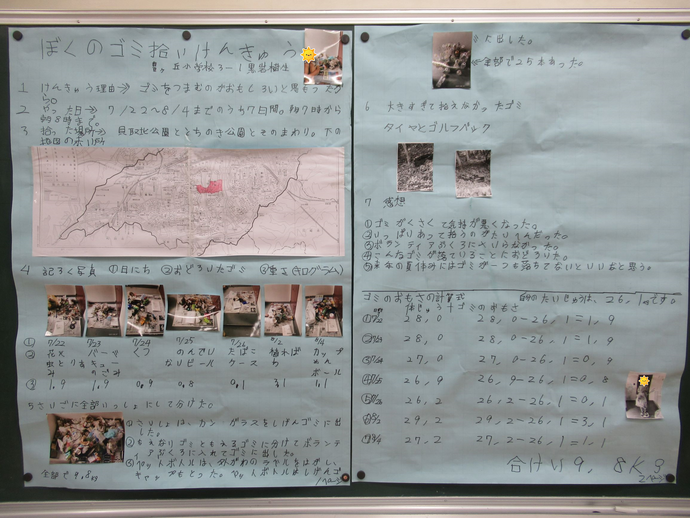 ぼくのゴミ拾いけんきゅう
丘小学校3-1
1 けんきゅう理由→ ゴミをつまむのがおもしろいと思ったか
ら。
2 やった日→ 7/22〜8/4までのうち7日間。約7時から
約8時まで。
3 拾った場所→ 貝取北公園ととちのき公園とそのまわり。下の
地図の赤い所
4 記ろく写真 ①日にち ②おどろいたゴミ ③重さ(キログラム)
① 7/22 7/23 7/24 7/25 7/26 8/2 8/4
② 花火 くつ のんでい たばこ カップ
虫とりあみ なりビール ケース めん
ボール
③ 1,9 1,9 0,9 0,8 0,1 3,1 1,1
5 さいごに全部いっしょにして分けた。
①さいしょは、カン、ガラスをしげんゴミに出
した。
②もえないゴミともえるゴミに分けてボランテ
ィアぶくろに入れてゴミに出した。
③ペットボトルは、外がわのラベルをはがし、
キャップもとった。ペットボトルはしげんゴ
全部で9,8kg
1ページ
ミに出した。
全部で25本あった。
6 大きすぎて拾えなかったゴミ
タイヤとゴルフバック
7 感想
①ゴミがくさくて気持が悪くなった。
②いっぱいあって拾うのがたいへんだった。
③ボランティアぶくろに入
④こんなゴミが落ちていることにおどろいた。
⑤来年の夏休みにはゴミが一つも落ちてないといいなと思う。
ゴミのおもさの計算式 ぼくのたいじゅうは、26,1kgです。
体じゅう+ゴミのおもさ
①7/22 28,0 28,0-26,1=1,9
②7/23 28,0 28,0-26,1=1,9
③7/24 27,0 27,0-26,1=0,9
④7/25 26,9 26,9-26,1=0,8
⑤7/26 26,2 26,2-26,1=0,1
⑥8/2 29,2 29,2-26,1=3,1
⑦8/4 27,2 27,2-26,1=1,1
合けい9,8Kg
2ページ